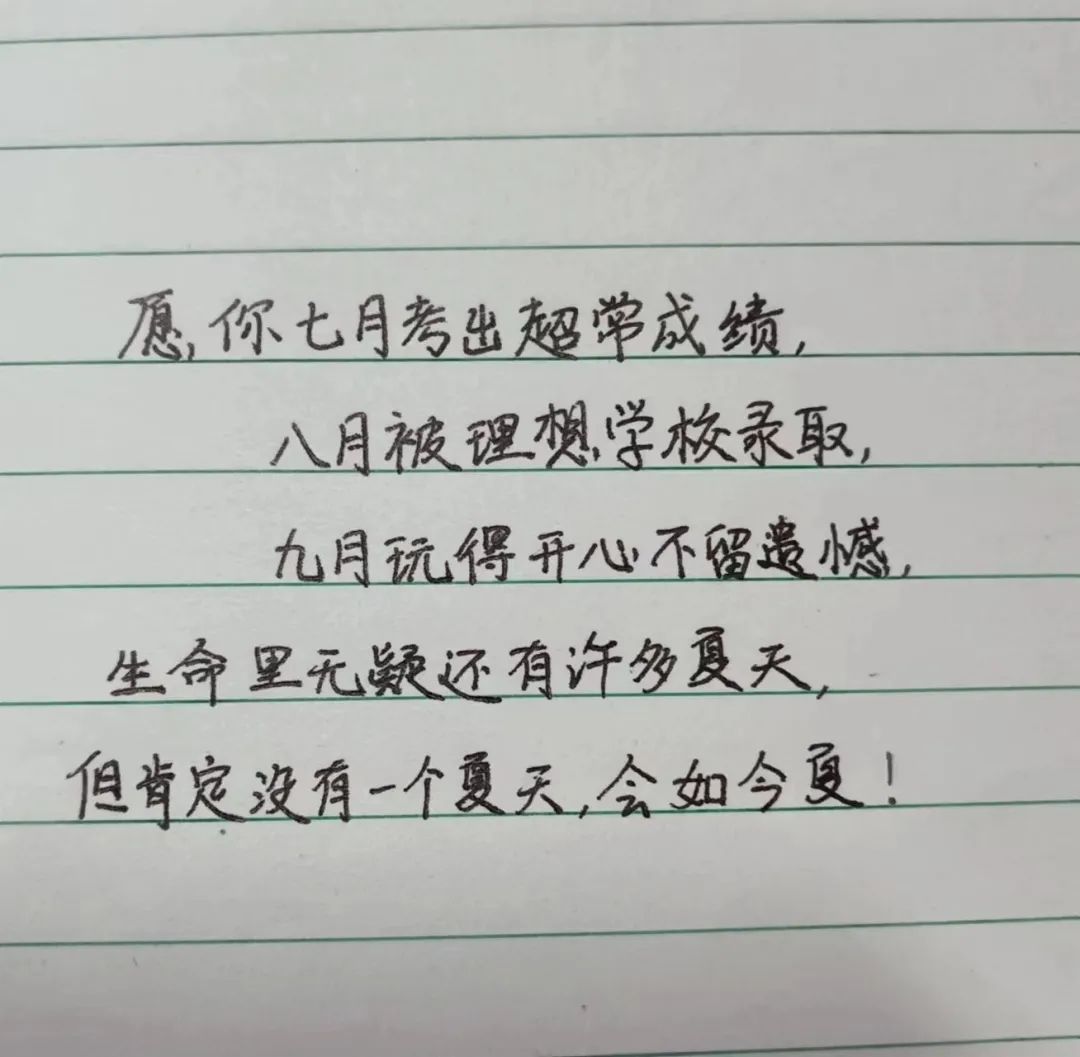 愿你七月考出超常成绩,
八月被理想学校录取,
九月玩得开心不留遗憾,
生命里无疑还有许多夏天,
但肯定没有一个夏天,会如今夏!